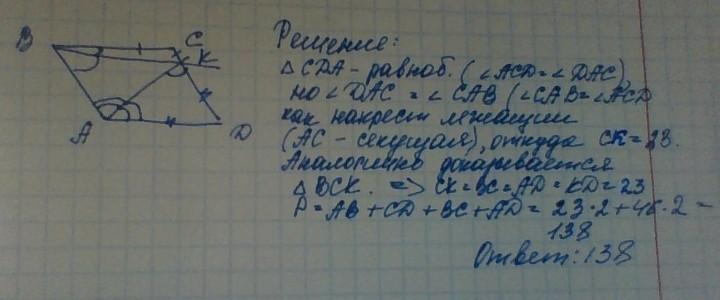 В
С
К
А
D
Решение:
△ CDA - равноб. (∠ACD = ∠DAC)
но ∠DAC = ∠CAB (∠CAB = ∠ACD
как накрест лежащии
(AC - секущая), откуда CK = 23.
Аналогично доказывается
△ BCK. => CK = BC = AD = KD = 23
P = AB + CD + BC + AD = 23·2 + 46·2 =
138
Ответ: 138